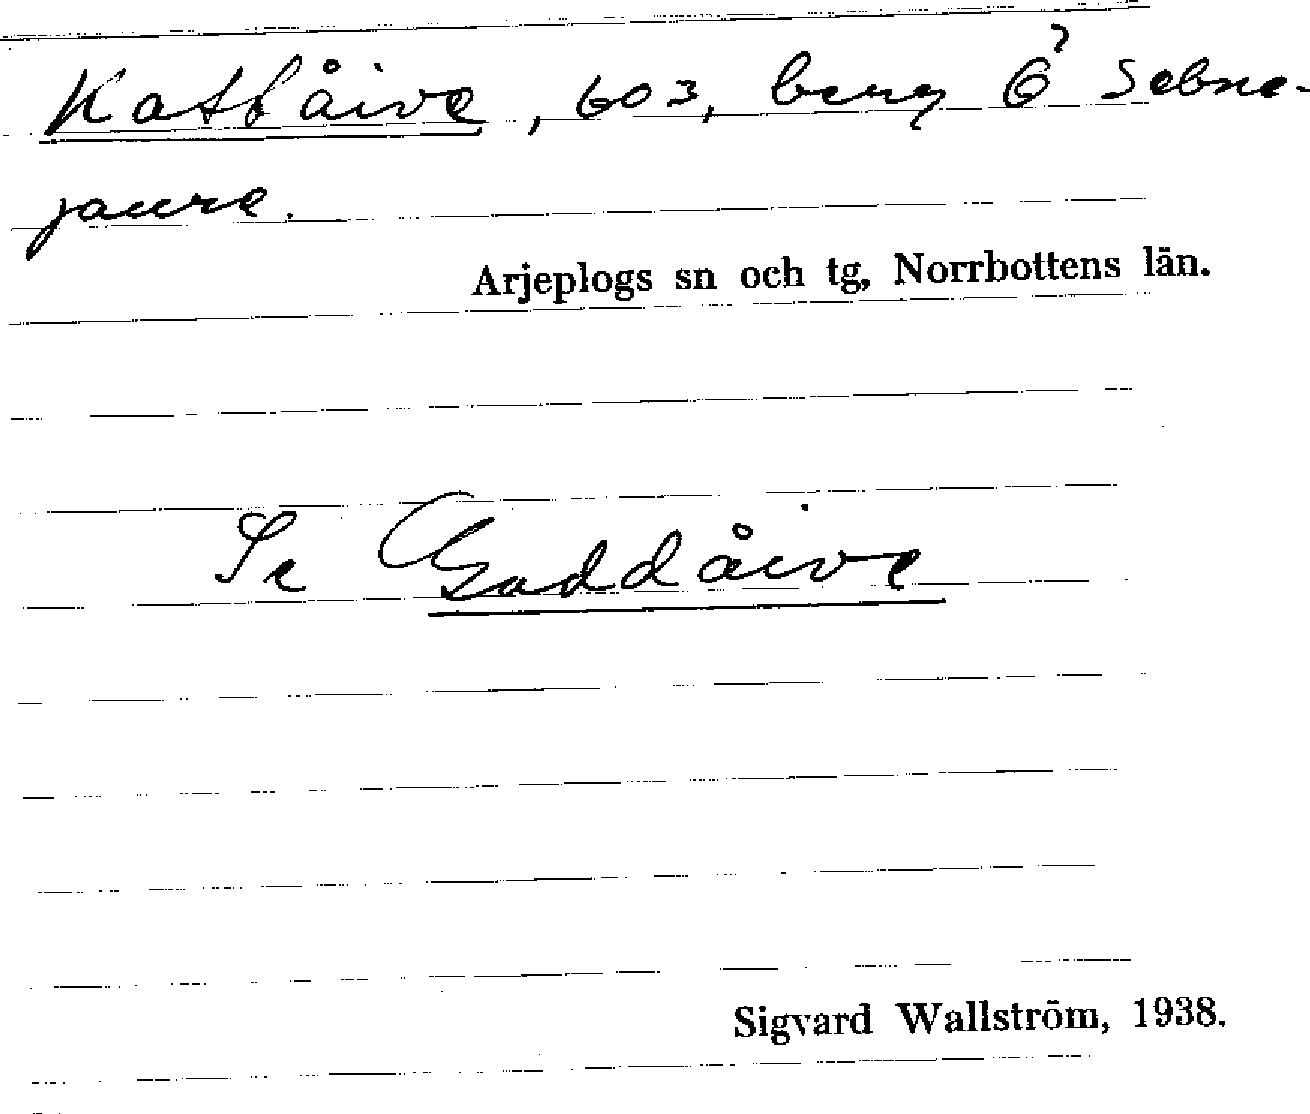 Kattåive, 603, berg Ö Sebne-
jaure.
Arjeplogs sn och tg, Norrbottens län.
Se Gaddåive
Sigvard Wallström, 1938.